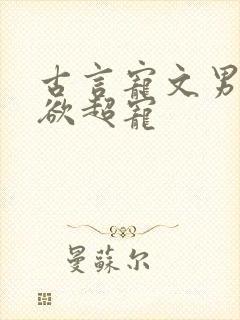 古言宠文男
欲超宠
曼蘇尔